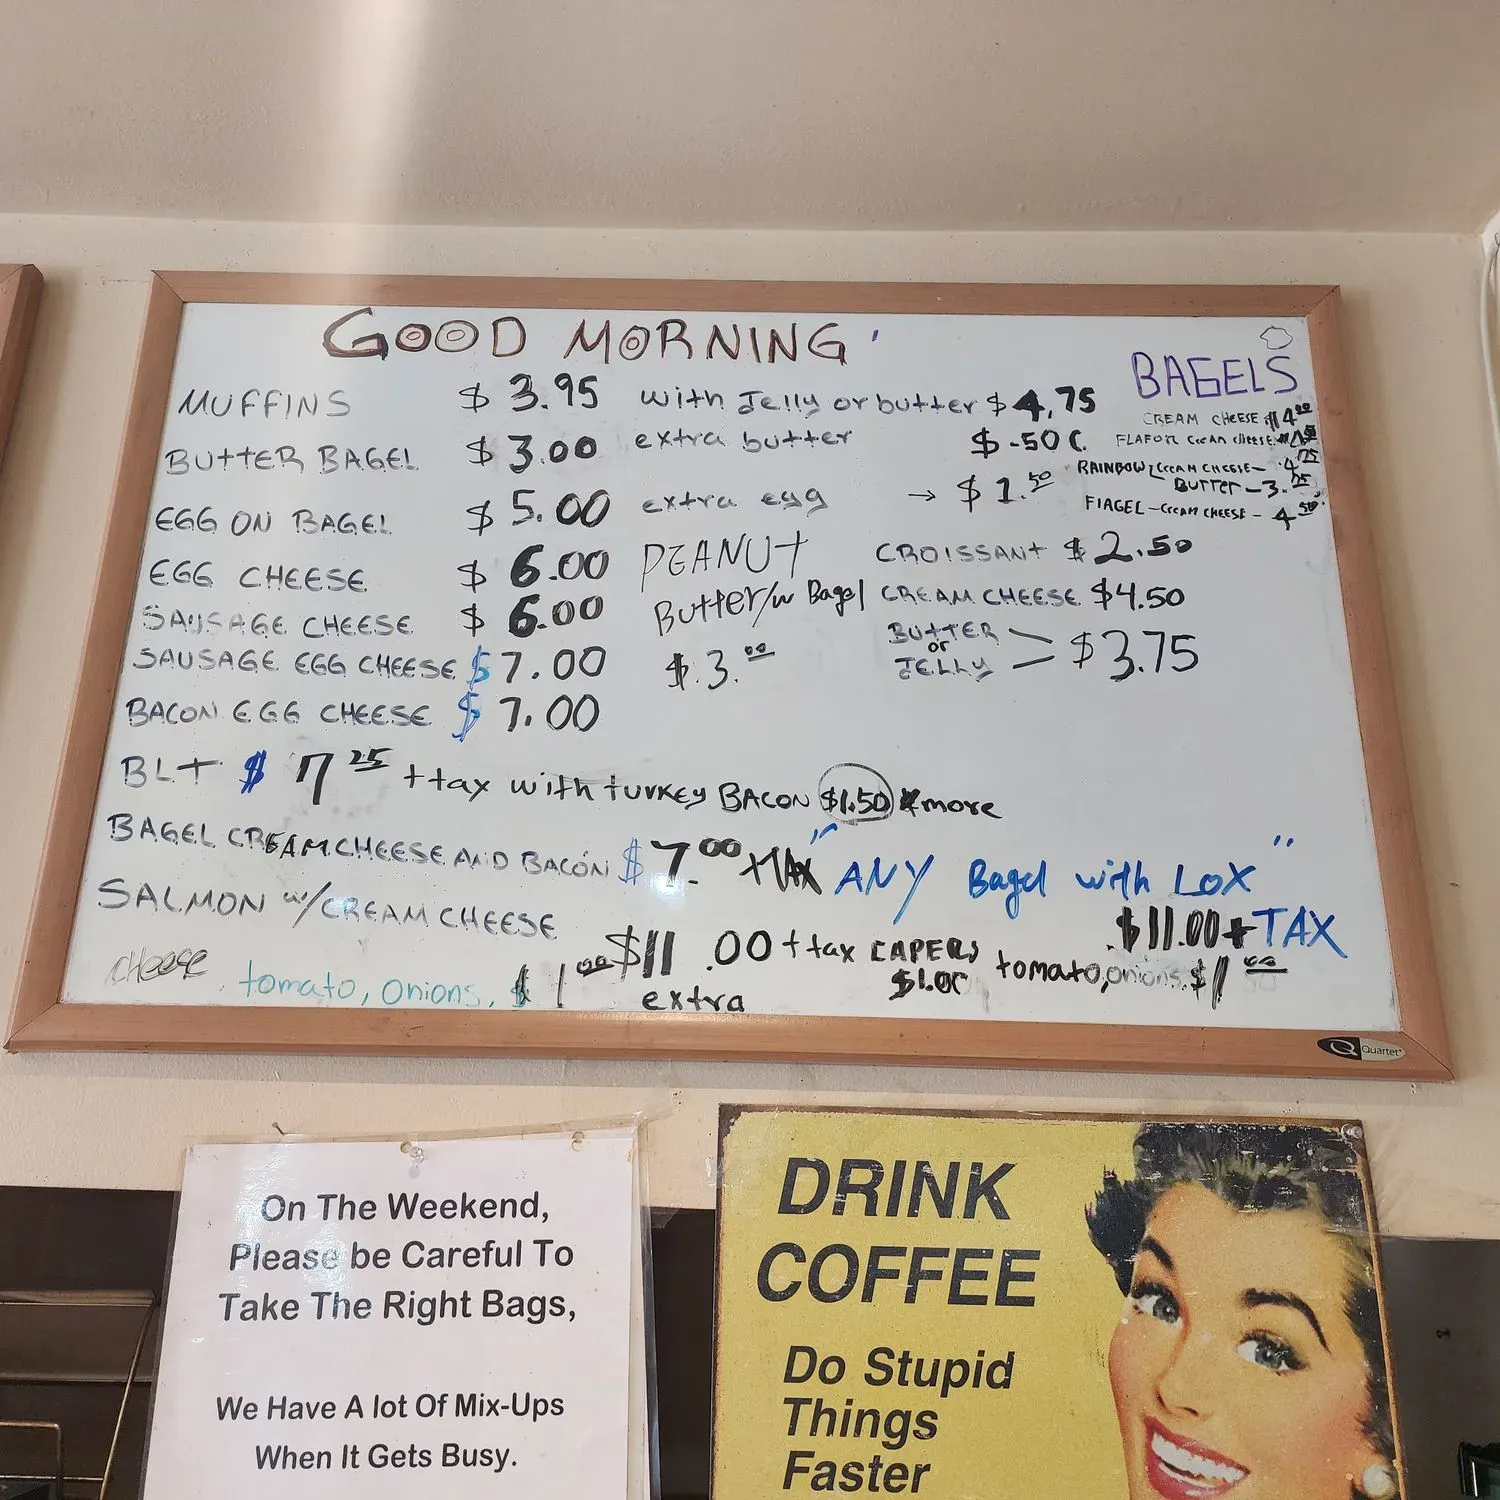 GOOD MORNING
MUFFINS $ 3.95 with Jelly or butter $ 4.75
BUTTER BAGEL $ 3.00 extra butter $ .50 C
EGG ON BAGEL $ 5.00 extra egg → $ 1.50
EGG CHEESE $ 6.00
SAUSAGE CHEESE $ 6.00
SAUSAGE EGG CHEESE $ 7.00
BACON EGG CHEESE $ 7.00
PEANUT
BUTTER/w Bagel
$ 3.00
CROISSANT $ 2.50
CREAM CHEESE $4.50
BUTTER
or
JELLY > $3.75
BAGELS
CREAM CHEESE $ 4.00
FLAFOR CREAM CHEESE
RAINBOW CREAM CHEESE - 4.75
BUTTER - 3.25
FIAGEL - CREAM CHEESE - 4.50
BLT $ 7.25 + tax with turkey BACON $1.50 more
BAGEL CREAM CHEESE AND BACON $ 7.00 + TAX
"ANY Bagel with LOX"
$11.00 + TAX
SALMON w/CREAM CHEESE $11.00 + tax CAPERS tomato, onions, $1.00
$1.00
cheese tomato, onions, $1.00 extra
Quartet
On The Weekend,
Please be Careful To
Take The Right Bags,
We Have A lot Of Mix-Ups
When It Gets Busy.
DRINK
COFFEE
Do Stupid
Things
Faster